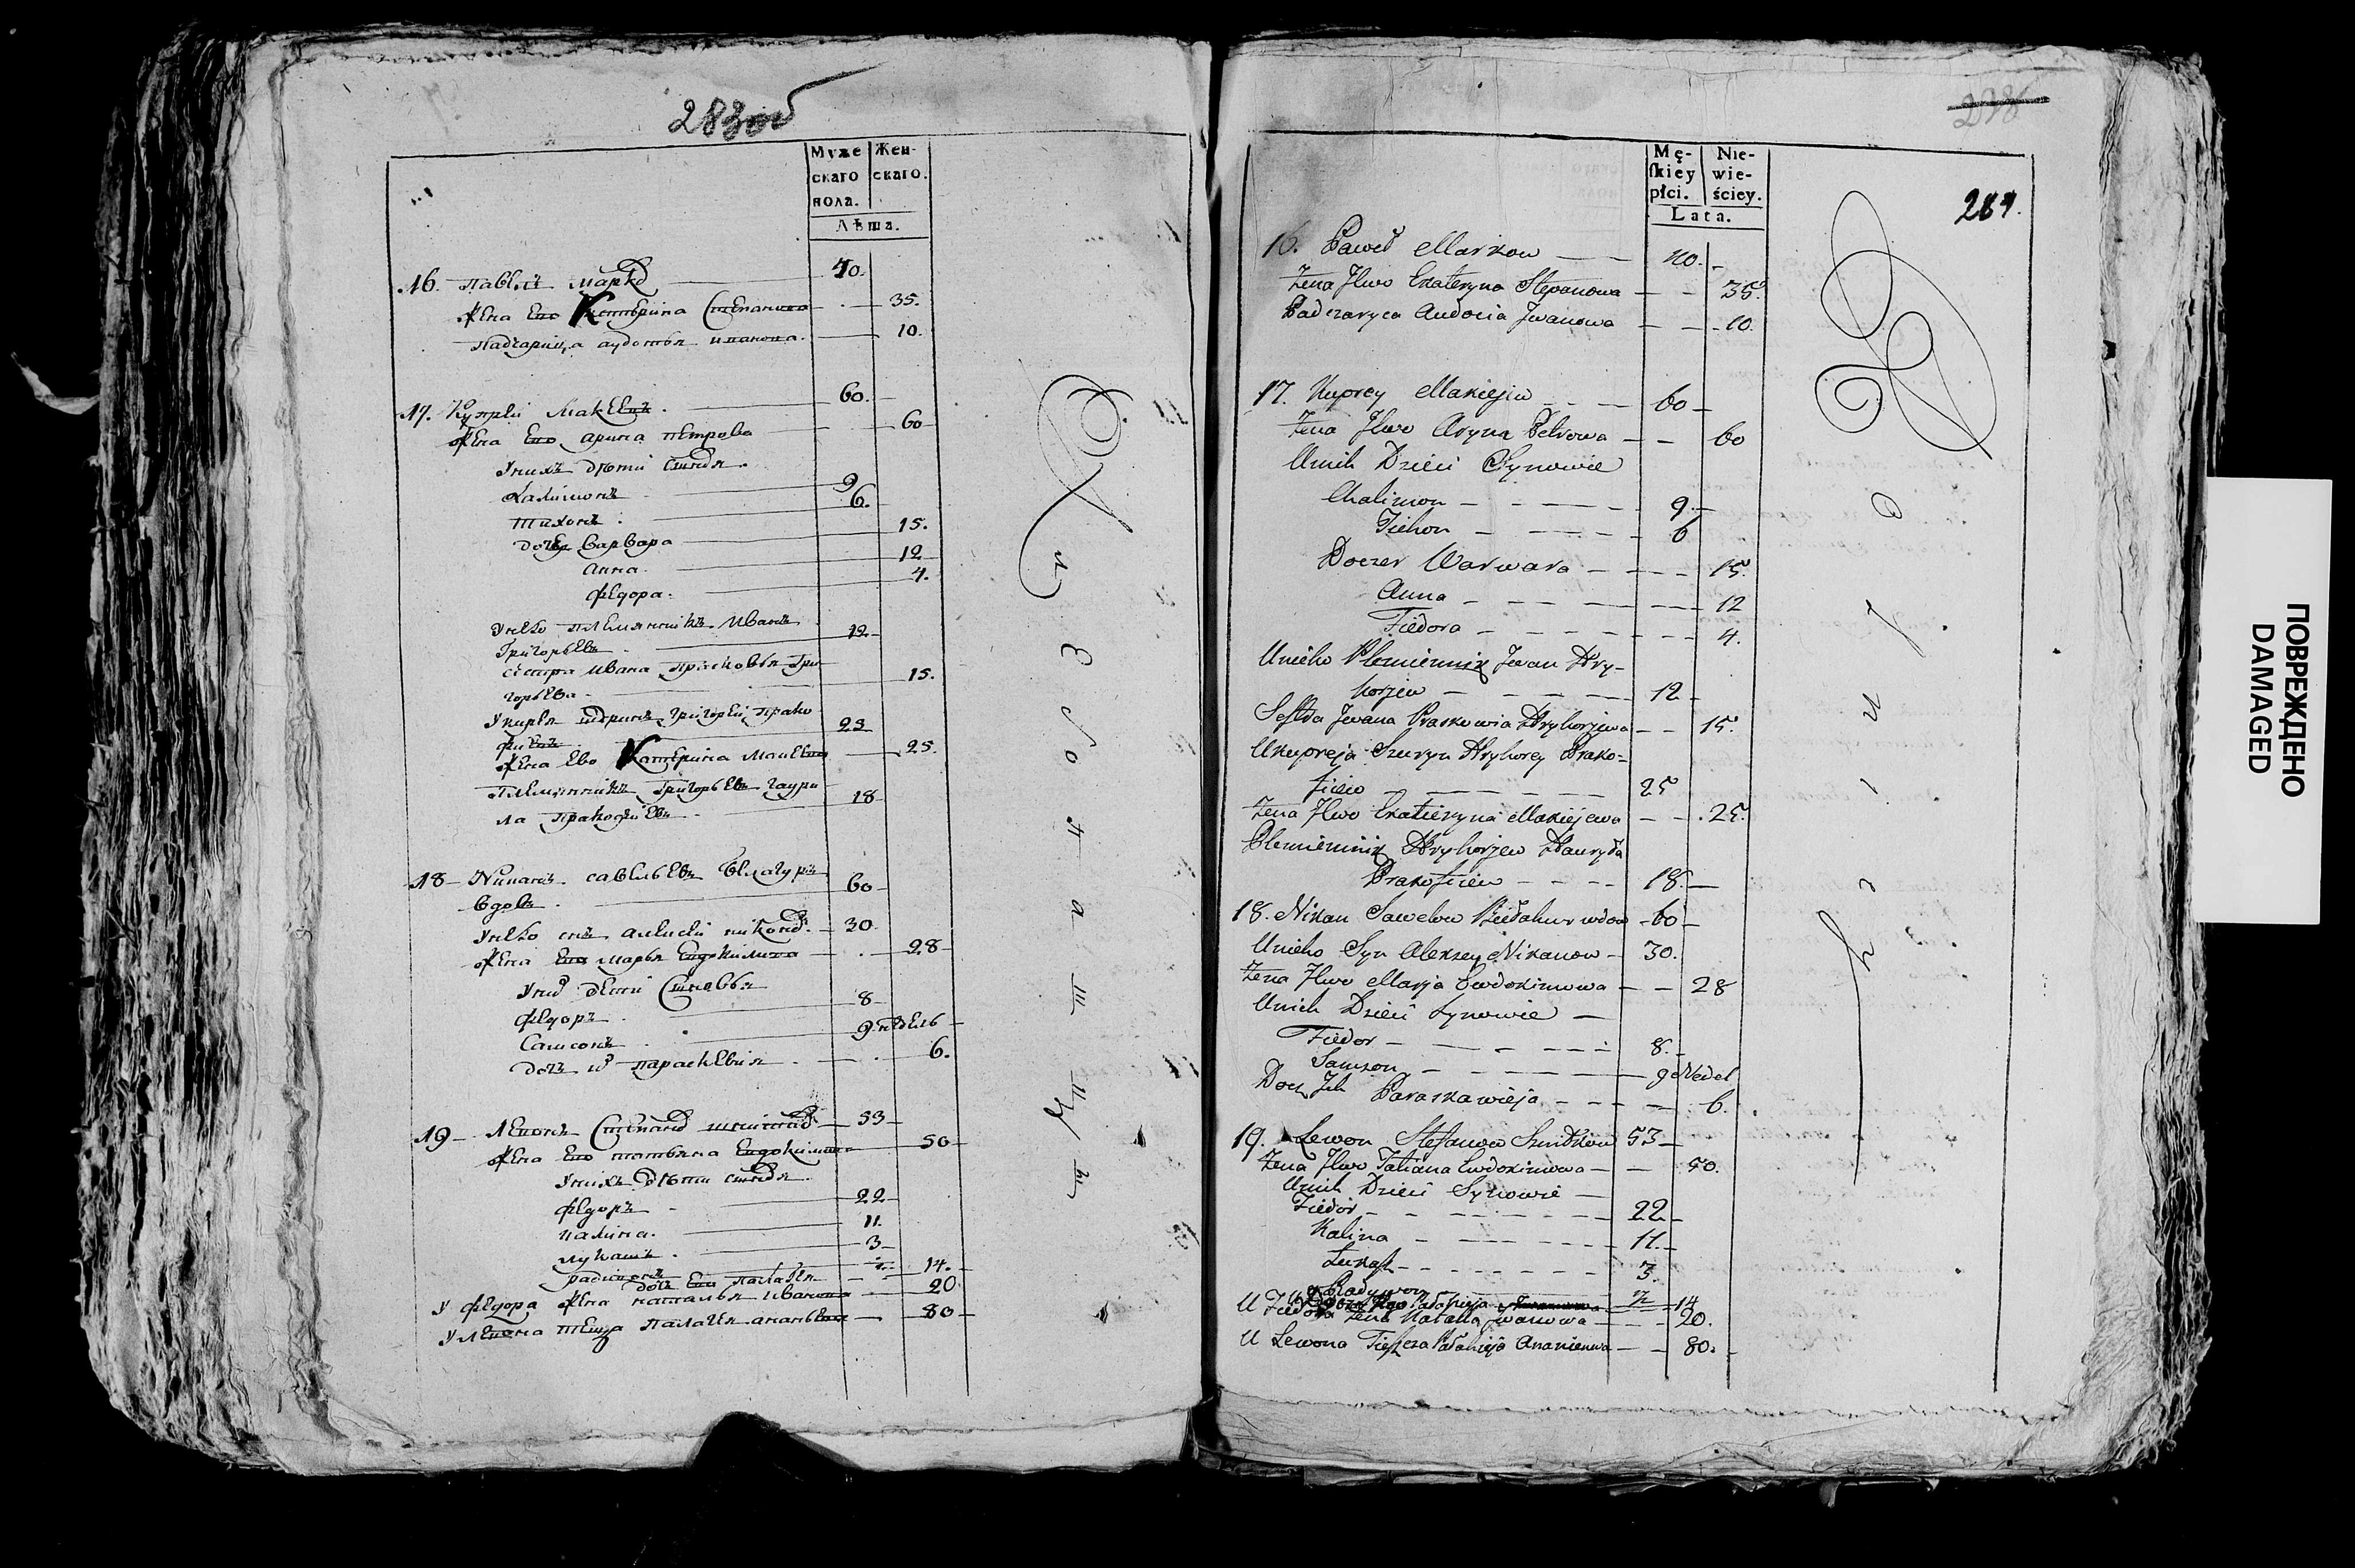 283об
Муже
скаго
пола.
Жен-
скаго.
Лѣта.
16. павелъ марковъ 40.
жена ево Катерина Степанова 35.
падчарица аудотья иванова. 10.
17. Купрей Макеевъ. 60.
жена ево арина петрова 60
У нихъ дѣти
халимонъ 9
тихонъ 6.
дочь варвара 15.
анна. 12
федора. 4.
У нево племянникъ иванъ
Григорьевъ 12
сестра ивана прасковья Гри
горьева 15.
шуринъ григорей прако
фьевъ
жена ево Катерина Макеева 25.
племянникъ Григорьевъ гаури
ла пракофьевъ 18
18 Никанъ савельевъ
вдовъ 60
У нево сынъ алексей никоновъ. 30
жена ево марья евдокимова 28
У нихъ дети Сыновья
федоръ 8
Самсонъ 9 недель
дочь ихъ параскевия 6.
19 Левонъ Степановъ 53
жена ево татьяна евдокимова 50
У нихъ дѣти
федоръ 22
калина. 11.
лукашъ 3
радивонъ
дочь ево палагея 14.
У федора жена наталья иванова 20
У левона теща палагея ананьева 80
Х и з о п а ш ц ы
Mę-
ſkiey
płci.
Nie-
wie-
ściey.
Lata.
284.
16. Paweł Markow 40.
Żena Jhwo Ekateryna Stepanowa 35.
Padczaryca Audocia Jwanowa 10.
17. Kuprey Makiejew 60
Żena Jhwo Aryna Petrowa 60
Unich Dzieci Synowie
Chalimon 9.
Tichon 6
Doczer Warwara 15.
Anna 12
Fiedora 4.
Unieho Plemiennik Jwan Hry-
horjew 12
Sestra Jwana Praskowia Hryhorjewa 15.
Ukupreja Szuryn Hryhorey Prako-
fiew 25
Żena Jhwo Ekatieryna Makiejewa 25.
Plemiennik Hryhorjew Hauryła
Prakofiew 18.
18. Nikan Sawelew Biełahur wdow 60
Unieho Syn Aleksey Nikanow 30.
Żena Jhwo Marja Ewdokimowa 28
Unich Dzieci Synowie
Fiedor 8.
Samson 9 Nedel
Docz Jch Paraskawieja 6.
19. Lewon Stefanow 53
Żena Jhwo Tatiana Ewdokimowa 50.
Unich Dzieci Synowie
Fiedor 22
Kalina 11.
Łukasz 3.
Radywon
Pałahieja 14
U Fiedora Żena Natalla Jwanowa 20.
U Lewona Tieszcza Pałahieja Ananiewa 80.
ПОВРЕЖДЕНО
DAMAGED